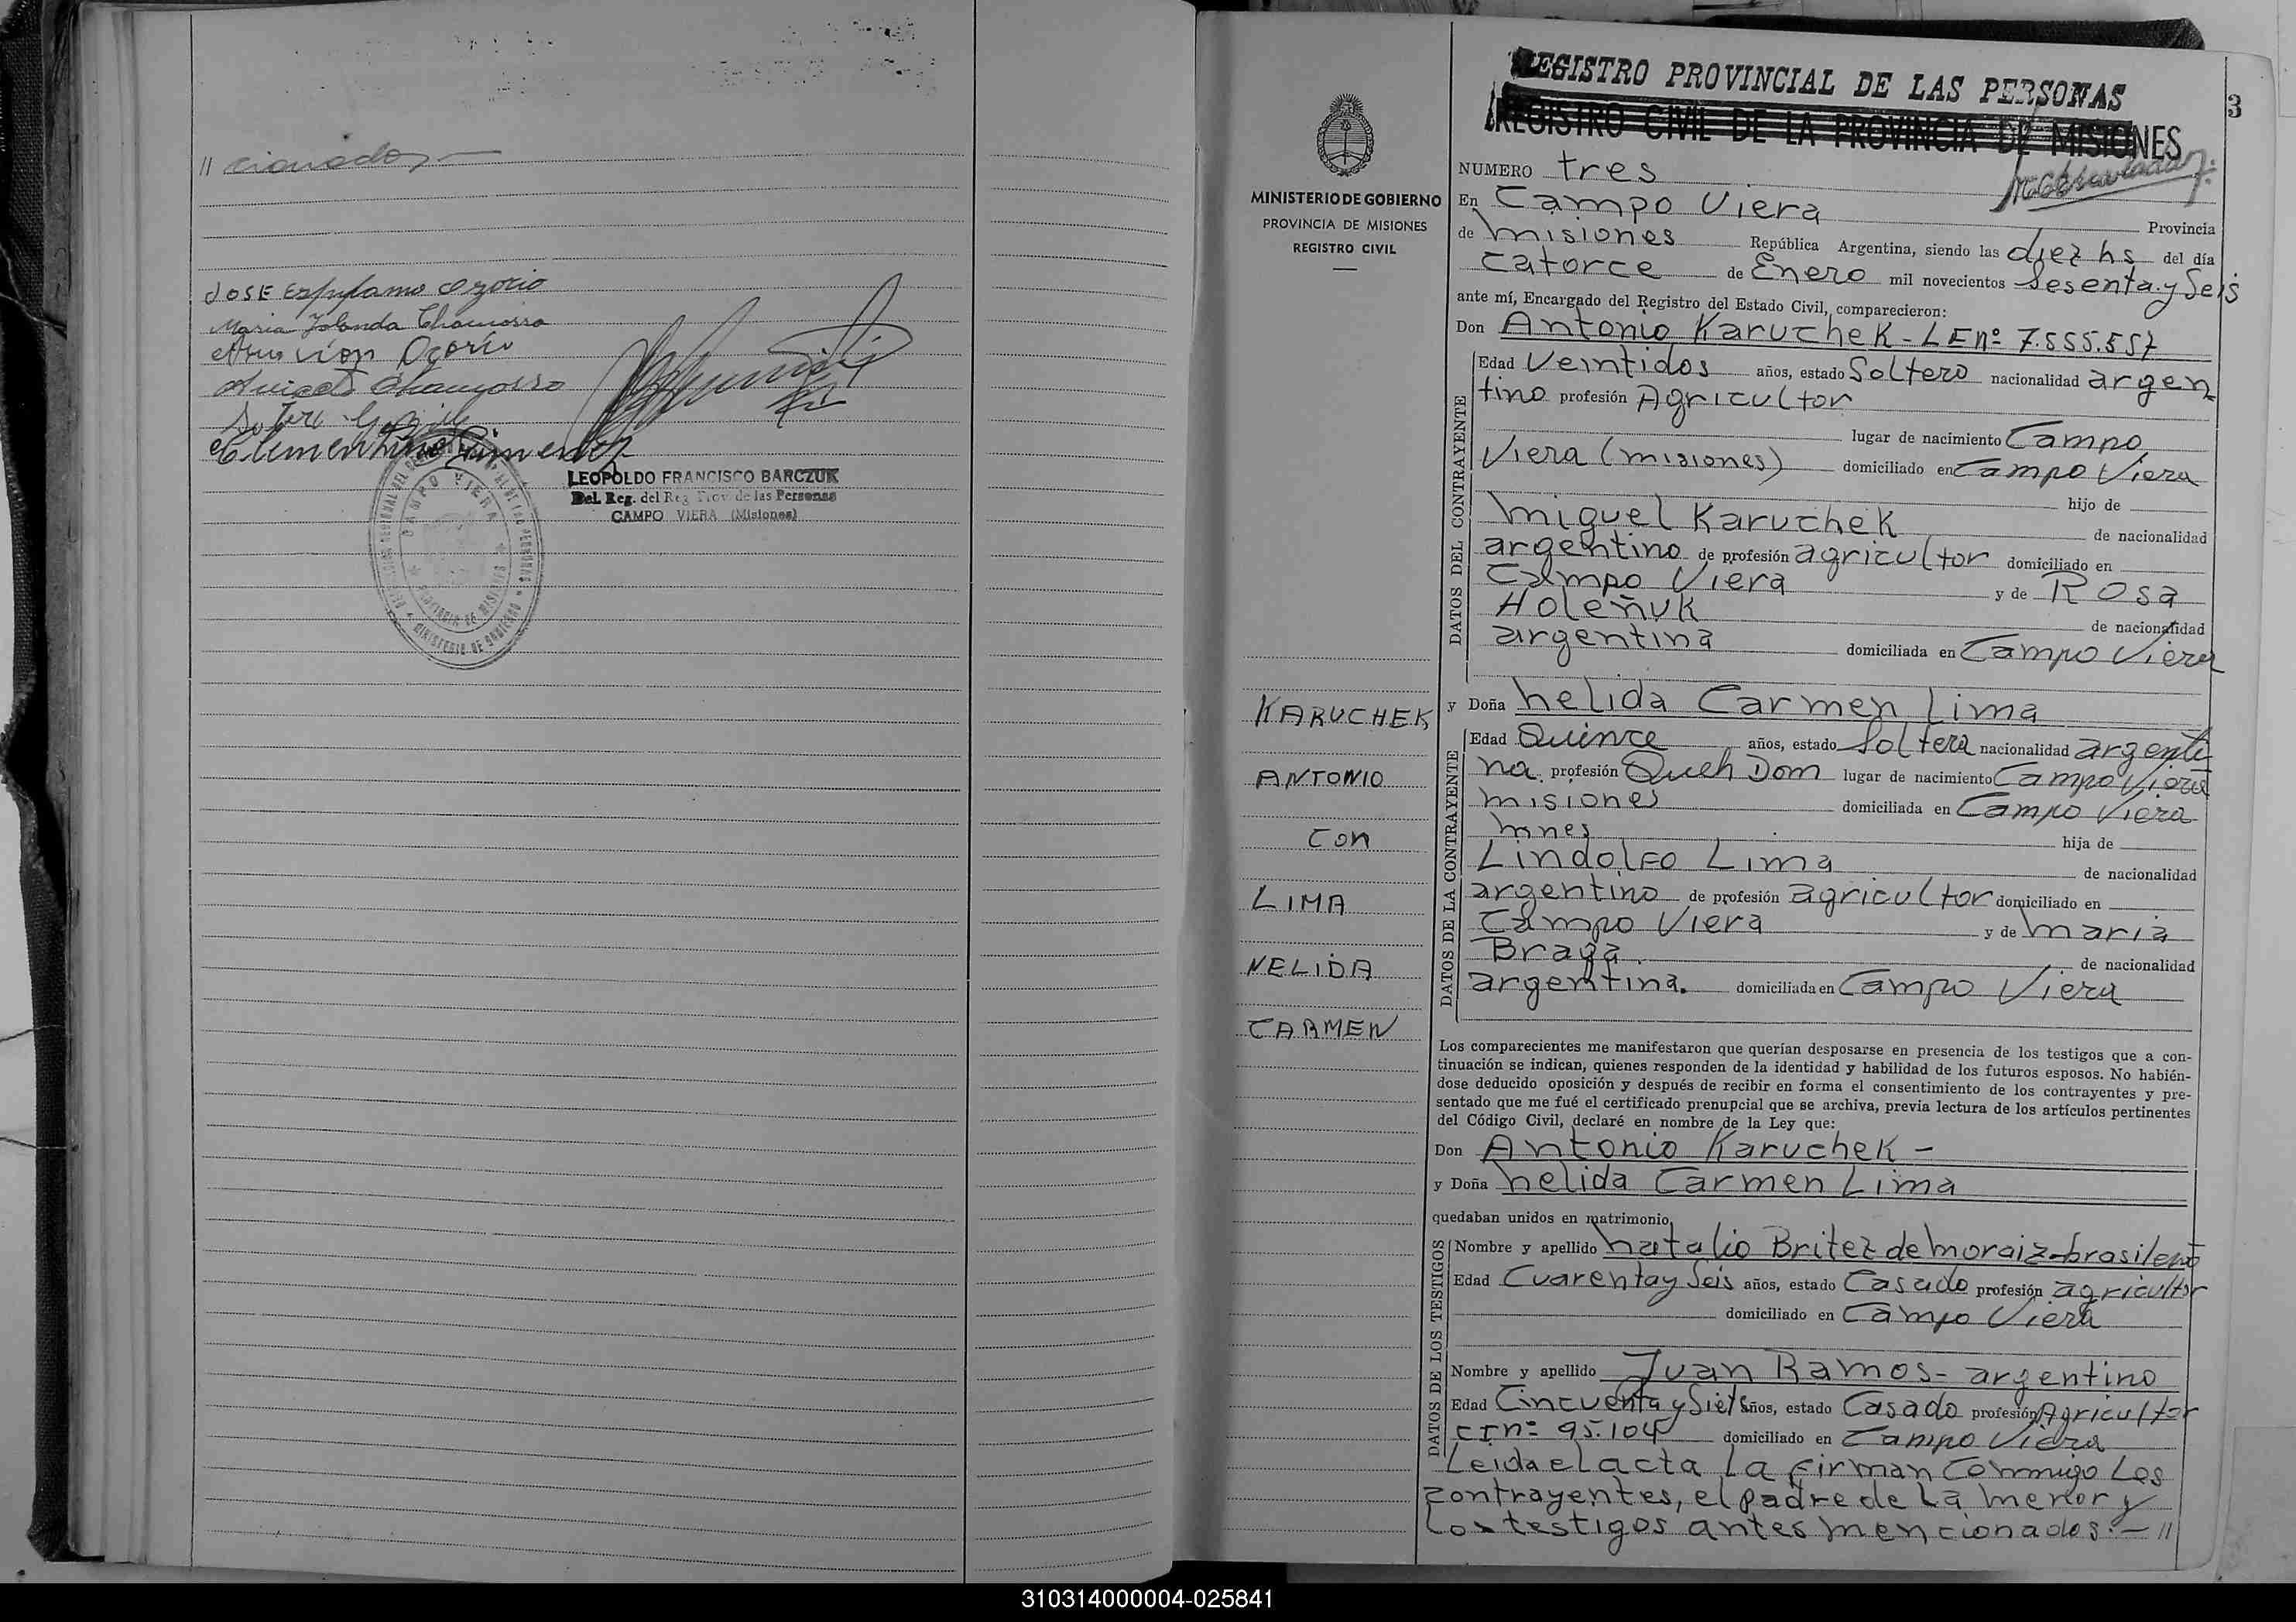 // cionados,—
JOSE Ozorio
Maria Yolanda Chamorro
Ozorio
Chamorro
Clementino Gimenez
LEOPOLDO FRANCISCO BARCZUK
Del. Reg. del Reg. Prov. de las Personas
CAMPO VIERA (Misiones)
CAMPO VIERA
PROVINCIA DE MISIONES
MINISTERIO DE GOBIERNO
MINISTERIO DE GOBIERNO
PROVINCIA DE MISIONES
REGISTRO CIVIL
KARUCHEK
ANTONIO
CON
LIMA
NELIDA
CARMEN
REGISTRO PROVINCIAL DE LAS PERSONAS
3
REGISTRO CIVIL DE LA PROVINCIA DE MISIONES
NUMERO tres
En Campo Viera Provincia
de Misiones República Argentina, siendo las diez hs del día
catorce de Enero mil novecientos Sesenta y Seis
ante mí, Encargado del Registro del Estado Civil, comparecieron:
Don Antonio Karuchek - LE nº 7.555.557
DATOS DEL CONTRAYENTE
Edad Veintidos años, estado Soltero nacionalidad argen
tino profesión Agricultor
lugar de nacimiento Campo
Viera (misiones) domiciliado en Campo Viera
hijo de
Miguel Karuchek de nacionalidad
argentino de profesión agricultor domiciliado en
Campo Viera y de Rosa
Holeñuk de nacionalidad
argentina domiciliada en Campo Viera
y Doña Nelida Carmen Lima
DATOS DE LA CONTRAYENTE
Edad Quince años, estado Soltera nacionalidad argenti
na profesión Queh Dom lugar de nacimiento Campo Viera
misiones domiciliada en Campo Viera
Mnes hija de
Lindolfo Lima de nacionalidad
argentino de profesión agricultor domiciliado en
Campo Viera y de Maria
Braga de nacionalidad
argentina. domiciliada en Campo Viera
Los comparecientes me manifestaron que querían desposarse en presencia de los testigos que a con-
tinuación se indican, quienes responden de la identidad y habilidad de los futuros esposos. No habién-
dose deducido oposición y después de recibir en forma el consentimiento de los contrayentes y pre-
sentado que me fué el certificado prenupcial que se archiva, previa lectura de los artículos pertinentes
del Código Civil, declaré en nombre de la Ley que:
Don Antonio Karuchek -
y Doña Nelida Carmen Lima
quedaban unidos en matrimonio.
DATOS DE LOS TESTIGOS
Nombre y apellido Natalio Britez de Moraiz-brasileño
Edad Cuarenta y Seis años, estado Casado profesión agricultor
domiciliado en Campo Viera
Nombre y apellido Juan Ramos - argentino
Edad Cincuenta y Siete años, estado Casado profesión Agricultor
CI nº 95.104 domiciliado en Campo Viera
Leida el acta La firman Conmigo Los
contrayentes, el padre de La menor y
Los testigos antes mencionados.— //
310314000004-025841